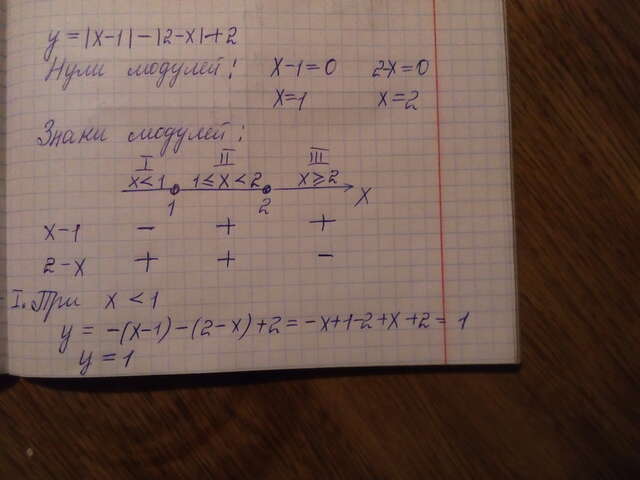 y = |x-1| - |2-x| + 2
Нули модулей: x-1=0 2-x=0
x=1 x=2
Знаки модулей:
I II III
x<1 1≤x<2 x≥2
1 2 x
x-1 - + +
2-x + + -
I. При x < 1
y = -(x-1)-(2-x)+2 = -x+1-2+x+2 = 1
y = 1